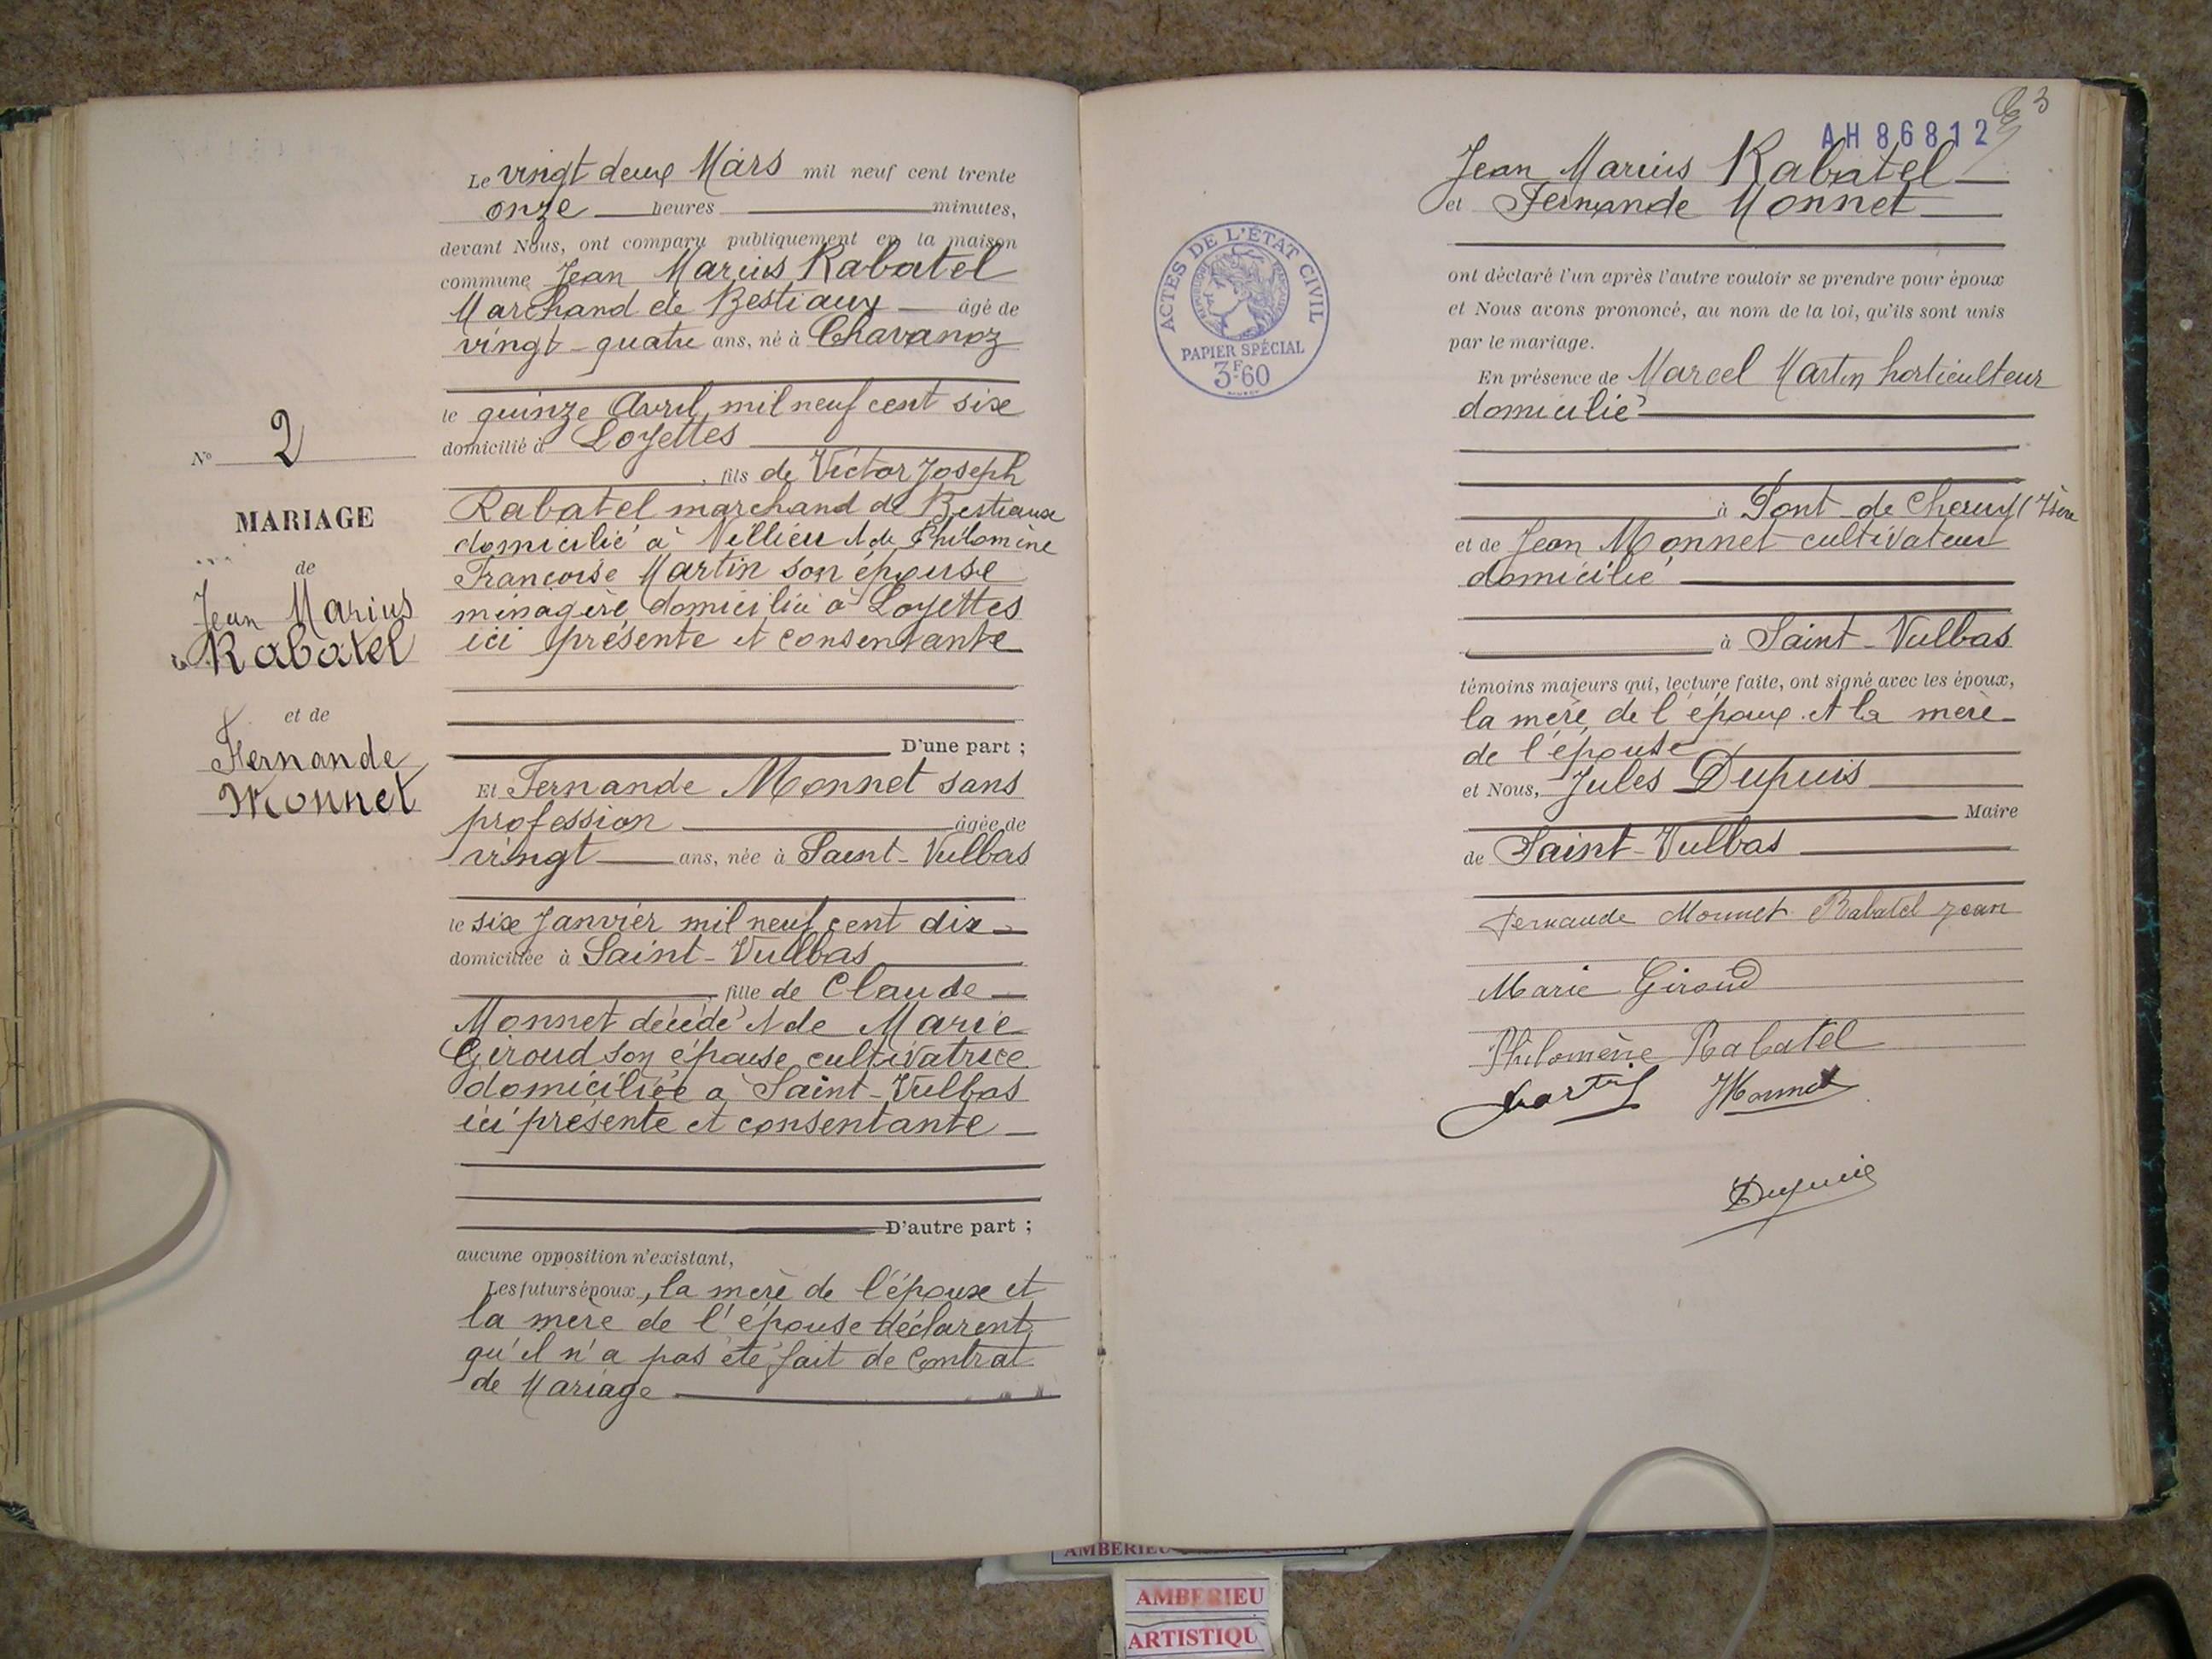 Le vingt deux Mars mil neuf cent trente
onze heures minutes,
devant Nous, ont comparu publiquement en la maison
commune Jean Marius Rabatel
Marchand de Bestiaux âgé de
vingt-quatre ans, né à Chavanoz
le quinze Avril mil neuf cent six
domicilié à Loyettes
, fils de Victor Joseph
Rabatel marchand de Bestiaux
domicilié à Villieu et de Philomène
Françoise Martin son épouse
ménagère, domicilié à Loyettes
ici présente et consentante
D'une part ;
Et Fernande Monnet sans
profession âgée de
vingt ans, née à Saint-Vulbas
le six Janvier mil neuf cent dix
domiciliée à Saint-Vulbas
, fille de Claude
Monnet décédé et de Marie
Giroud son épouse cultivatrice
domiciliée à Saint-Vulbas
ici présente et consentante
D'autre part ;
aucune opposition n'existant,
Les futurs époux, la mère de l'époux et
la mère de l'épouse déclarent
qu'il n'a pas été fait de Contrat
de Mariage
N° 2
MARIAGE
de
Jean Marius
Rabatel
et de
Fernande
Monnet
3
AH 86812
Jean Marius Rabatel
et Fernande Monnet
ont déclaré l'un après l'autre vouloir se prendre pour époux
et Nous avons prononcé, au nom de la loi, qu'ils sont unis
par le mariage.
En présence de Marcel Martin horticulteur
domicilié
à Pont-de-Cheruy (Isère
et de Jean Monnet cultivateur
domicilié
à Saint-Vulbas
témoins majeurs qui, lecture faite, ont signé avec les époux,
la mère de l'époux et la mère
de l'épouse
et Nous, Jules Dupuis
Maire
de Saint-Vulbas
Fernande Monnet Rabatel Jean
Marie Giroud
Philomène Rabatel
Martin JMonnet
Dupuis
ACTES DE L'ÉTAT CIVIL
PAPIER SPÉCIAL
3F60
AMBERIEU
AMBERIEU
ARTISTIQU